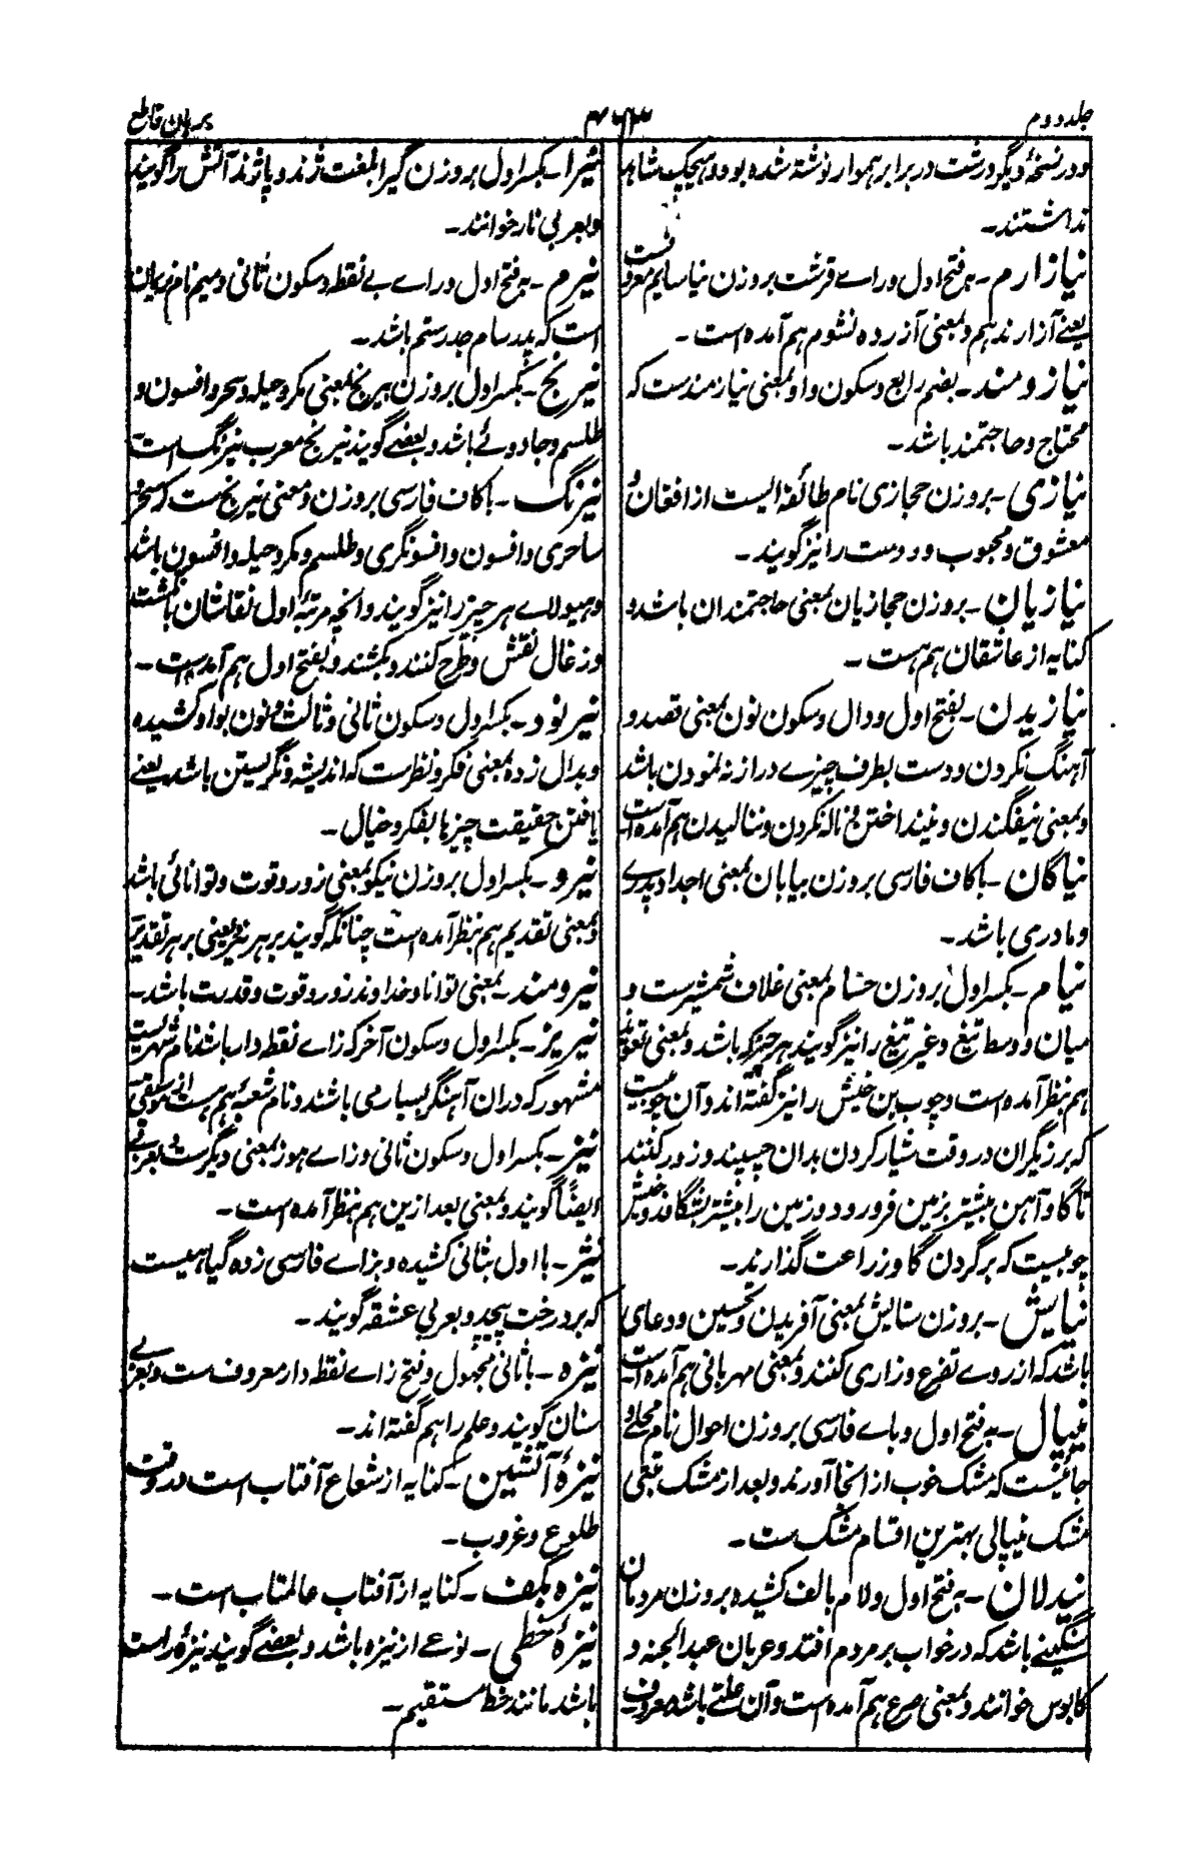 جلد دوم
۴۶۳
برهان قاطع
و در نسخهٔ دیگر درشت در برابر هموار نوشته شده بود و هیچیک شاهد
نداشتند۔
نیازارم۔ بفتح اول و رای قرشت بروزن نیاسایم معروفست
یعنے آزار ندهم و بمعنی آزرده نشوم هم آمده است۔
نیازومند۔ بضم رابع و سکون واو بمعنی نیازمندست که
محتاج و حاجتمند باشد۔
نیازی۔ بروزن حجازی نام طائفهٔ الیست از افغان و
معشوق و محبوب و دوست را نیز گویند۔
نیازیان۔ بروزن حجازیان بمعنی حاجتمندان باشد و
کنایه از عاشقان هم هست۔
نیازیدن۔ بفتح اول و دال و سکون نون بمعنی قصد و
آهنگ نکردن و دست بطرف چیزے دراز نه نمودن باشد
و بمعنی نیفگندن و نینداختن و ناله نکردن و ننالیدن هم آمده است
نیاگان۔ با کاف فارسی بروزن بیابان بمعنی اجداد پدری
و مادری باشد۔
نیام۔ بکسر اول بروزن حسام بمعنی غلاف شمشیرست و
میان و وسط تیغ و غیر تیغ را نیز گویند هر چیز که باشد و بمعنی تعویذ
هم بنظر آمده است و چوب بن خیش را نیز گفته اند و آن چوبیست
که برزگران در وقت شیار کردن بدان چسپند و زور کنند
تا گاو آهن بیشتر بزمین فرو رود و زمین را بیشتر بشگافد و خیش
چوبیست که بر گردن گاو زراعت گذارند۔
نیایش۔ بروزن ستایش بمعنی آفریدن و تحسین و دعای
باشد که از روے تضرع و زاری کنند و بمعنی مهربانی هم آمده است
نیپال۔ بفتح اول و باے فارسی بروزن احوال نام محلے و
جائیست که مشک خوب از انجا آورند و بعد از مشک تبتی
مشک نیپالی بهترین اقسام مشک ست۔
نیدلان۔ بفتح اول و لام بالف کشیده بروزن مردمان
سنگینے باشد که در خواب بر مردم افتد و عربان عبد الجنه و
کابوس خوانند و بمعنی صرع هم آمده است و آن علتے باشد معروف۔
نیرا۔ بکسر اول بروزن گیرا بلغت ژند و پاژند آتش را گویند
و بعربی نار خوانند۔
نیرم۔ بفتح اول و راے بے نقطه و سکون ثانی و میم نام نریمان
است که پدر سام جد رستم باشد۔
نیرنج۔ بکسر اول بروزن بیرنج بمعنی مکر و حیله و سحر و افسون و
طلسم و جادوئے باشد و بعضے گویند نیرنج معرب نیرنگ است
نیرنگ۔ با کاف فارسی بروزن و معنی نیرنج ست که سحر و
ساحری و افسون و افسونگری و طلسم و مکر و حیله و افسون باشد
و هیولاے هر چیز را نیز گویند و انچه مرتبهٔ اول نقاشان با انگشت
و زغال نقش و طرح کنند و بکشند و بفتح اول هم آمده است۔
نیرنود۔ بکسر اول و سکون ثانی و ثالث و نون بواو کشیده
و بدال زده بمعنی فکر و نظرست که اندیشه و نگریستن باشد یعنے
یافتن حقیقت چیزها بفکر و خیال۔
نیرو۔ بکسر اول بروزن نیکو بمعنی زور و قوت و توانائی باشد
و بمعنی تقدیم هم بنظر آمده است چنانکه گویند بر هر نیرو یعنی بر هر تقدیر
نیرومند۔ بمعنی توانا و خداوند زور و قوت و قدرت باشد۔
نیریز۔ بکسر اول و سکون آخر که زاے نقطه دار باشد نام شهریست
مشهور که دران آهنگر بسیار می باشند و نام شعبهٔ هم هست از موسیقی
نیز۔ بکسر اول و سکون ثانی و زاے هوز بمعنی دیگرست و بعربی
ایضاً گویند و بمعنی بعد ازین هم بنظر آمده است۔
نیژ۔ با اول بثانی کشیده و بزاے فارسی زده گیاهیست
که بر درخت پیچد و بعربی عشقه گویند۔
نیزه۔ با ثانی مجهول و فتح زاے نقطه دار معروف ست و بعربی
سنان گویند و علم را هم گفته اند۔
نیزهٔ آتشین۔ کنایه از شعاع آفتاب است در وقت
طلوع و غروب۔
نیزه بکف۔ کنایه از آفتاب عالمتاب است۔
نیزهٔ خطی۔ نوعے از نیزه باشد و بعضے گویند نیزهٔ راست
باشد مانند خط مستقیم۔